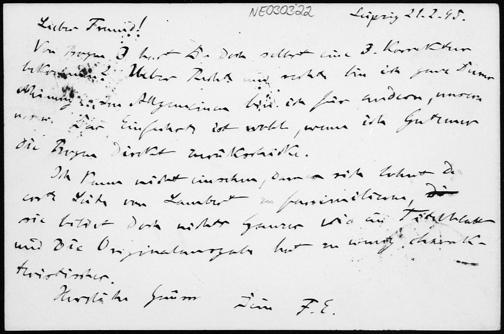 NE030322
Leipzig 21.2.95.
Lieber Freund!
Von Bogen 3 hast Du doch selbst eine 3. Korrektur
bekommen? Ueber Rechts und rechts bin ich ganz Deiner
Meinung; im Allgemeinen bin ich für andern, unsern
usw. Das Einfachste ist wohl, wenn ich Gutzmer
die Bogen direkt zurückschicke.
Ich kann nicht einsehen, dass es sich lohnt die
erste Seite von Lambert zu facsimiliren,
sie bildet doch nichts Ganzes wie ein Titelblatt
und die Originalausgabe hat zu wenig charak-
teristisches.
Herzliche Grüsse Dein F. E.